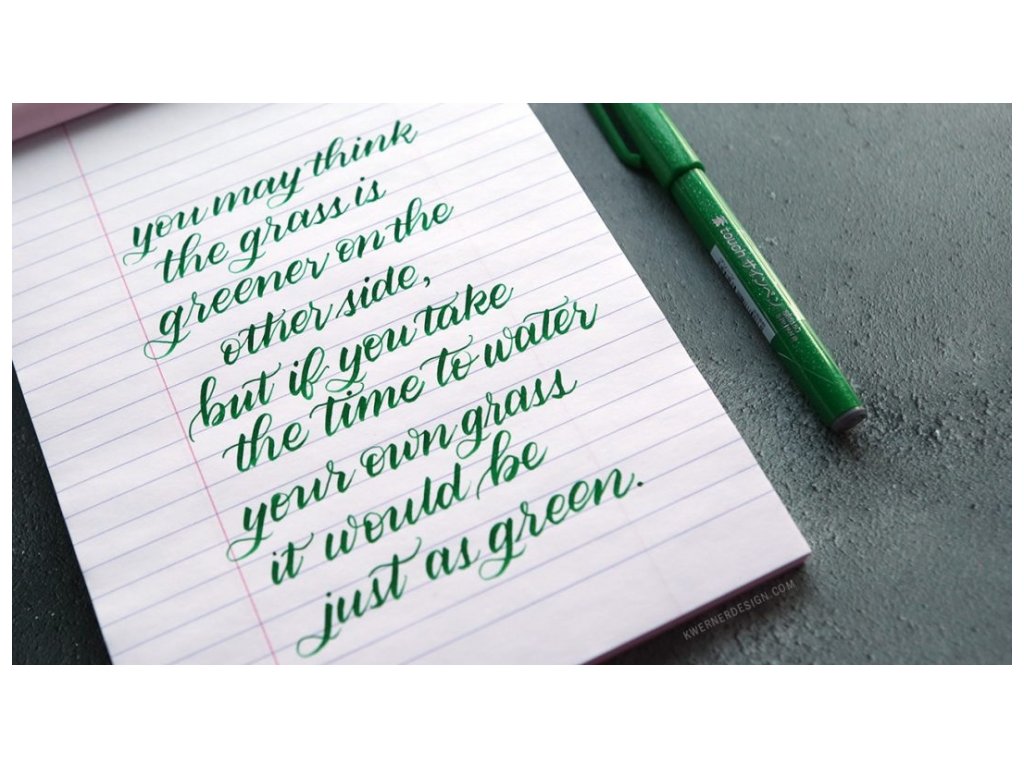 you may think
the grass is
greener on the
other side,
but if you take
the time to water
your own grass
it would be
just as green.
touch サインペン
KWERNERDESIGN.COM